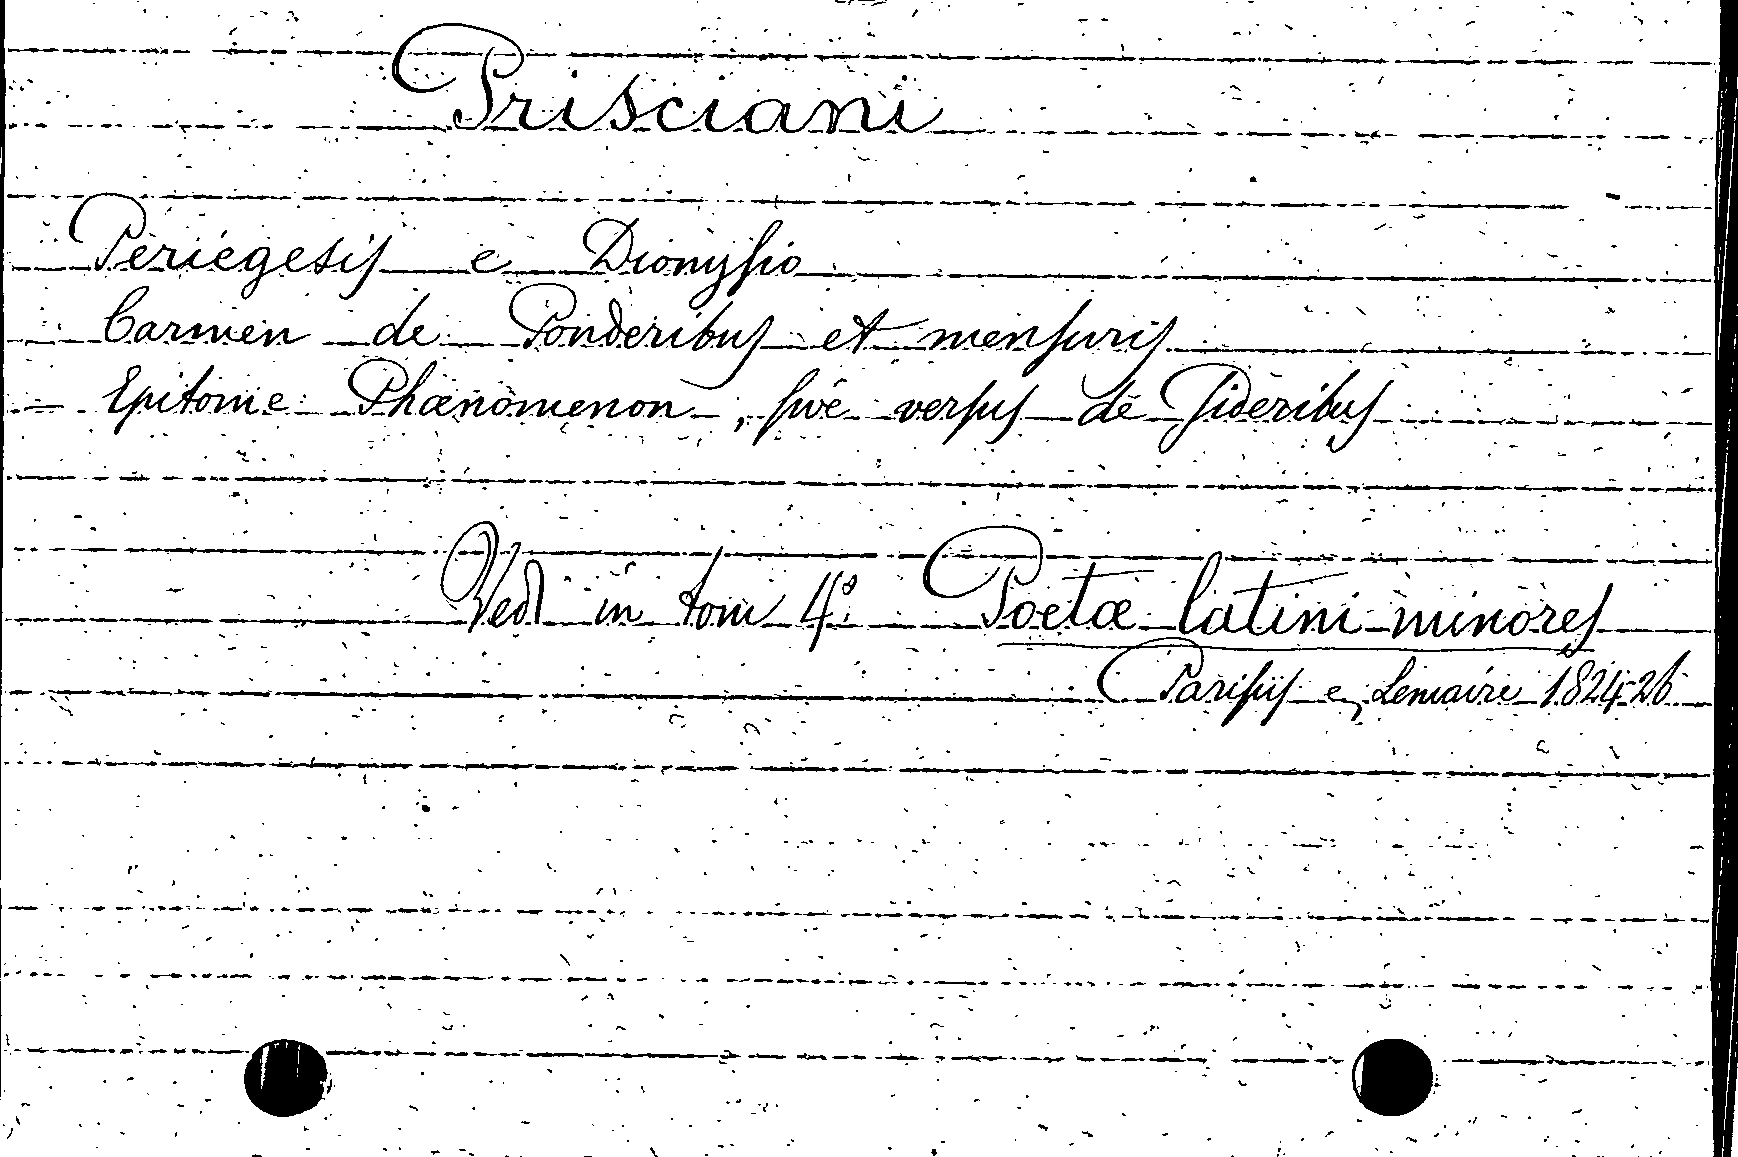 Prisciani
Periegesis e Dionysio
Carmen de Ponderibus et mensuris
Epitome Phœnomenon, sive versus de Sideribus
Vedi in tom 4º. Poetæ latini minores
Parisiis e, Lemaire 1824-26